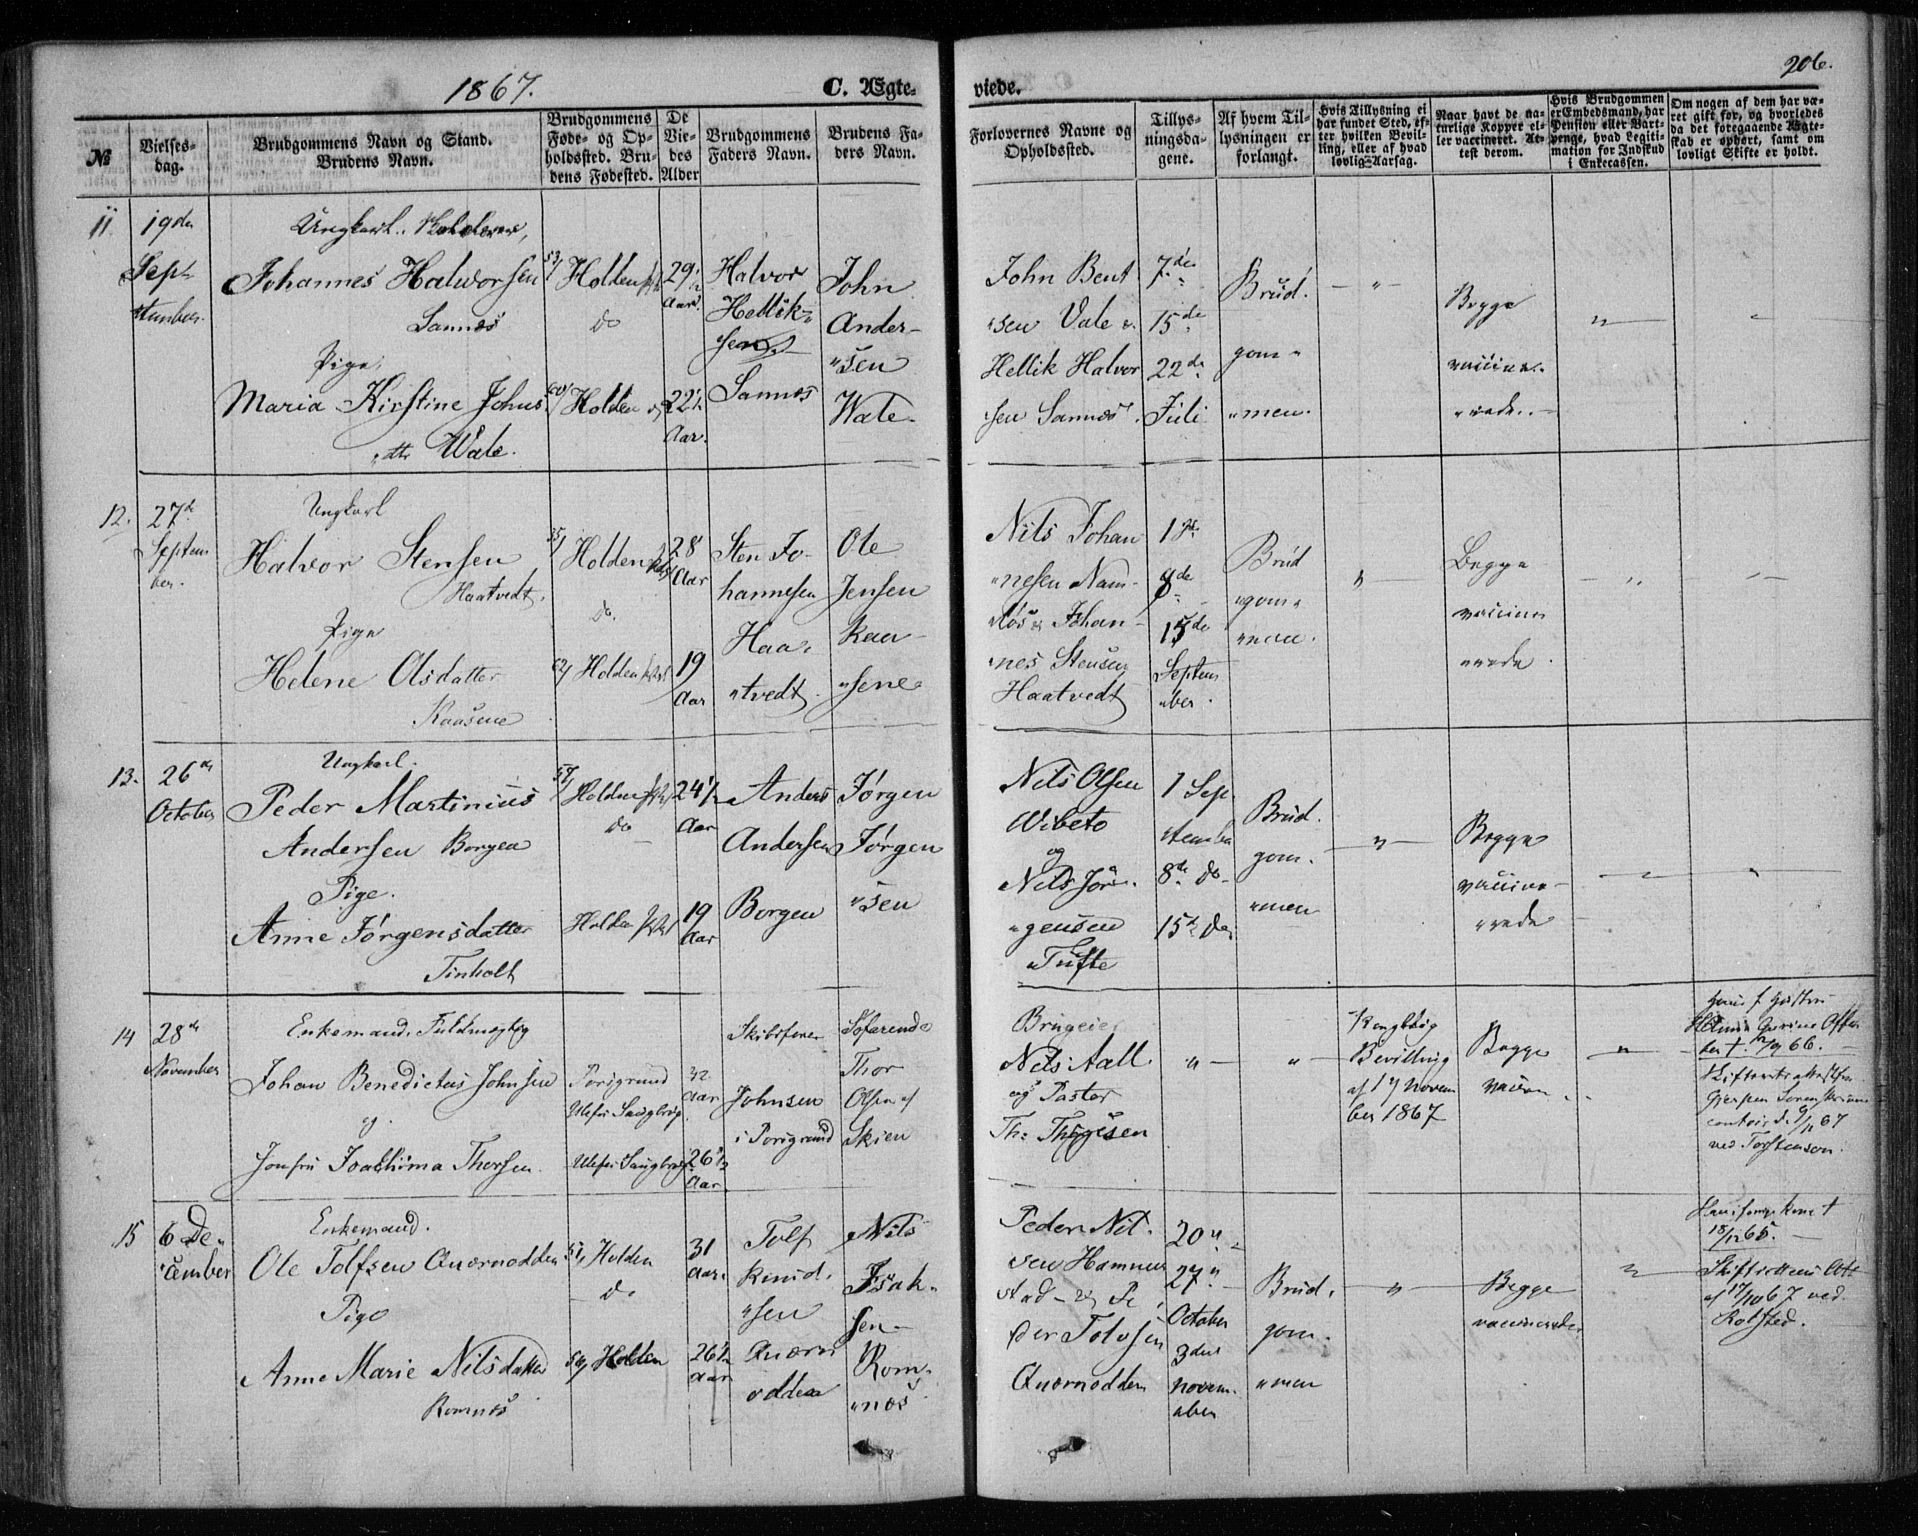 1867.
C. Ægte-
viede.
206.
№
Vielses-
dag.
Brudgommens Navn og Stand.
Brudens Navn.
Brudgommens
Føde- og Op-
holdssted. Bru-
dens Fødested.
De
Vie-
des
Alder
Brudgommens
Faders Navn.
Brudens Fa-
ders Navn.
Forlovernes Navne og
Opholdssted.
Tillys-
ningsda-
gene.
Af hvem Til-
lysningen er
forlangt.
Hvis Tillysning ei
har fundet Sted, ef-
ter hvilken Bevil-
ling, eller af hvad
lovlig Aarsag.
Naar havt de na-
turlige Kopper el-
ler vaccineret. At-
test derom.
Hvis Brudgommen
er Embedsmand, har
Pension eller Vart-
penge, hvad Legiti-
mation for Indskud
i Enkecassen.
Om nogen af dem har væ-
ret gift før, og hvorledes
da det foregaaende Ægte-
skab er ophørt, samt om
lovligt Skifte er holdt.
11
19de
Sep-
Ungkarl
Johannes Halvorsen
Sannes
Pige
Maria Kirstine Johns
Wale.
Holden
do
Holden
29½
Aar.
22½
Aar.
Halvor
Hellik-
sen
Sannes
John
Ander-
"sen
Wale
John Bent
"sen Vale
Hellik Halvor
sen Sannes
7de
15de
22de
Juli
Brud.
gom "
"men.
Begge
vaccine-
"rede
12.
27de
Septem
ber.
Ungkarl
Halvor Stensen
Haatvedt.
Pige
Helene Olsdatter
Kaasene
Holden
do.
Holden
28
Aar
19
Aar
Sten Jo-
hannesen
Haa-
"tvedt
Ole
Jensen
Kaa-
"sene
Nils Johan
"nesen Nam-
"løs & Johan-
"nes Stensen
Haatvedt
1ste
8de
15de
Septem
"ber
Brud
"gom "
"men.
Begge
vaccine
"rede
13.
26de
October
Ungkarl.
Peder Martinius
Andersen Borgen
Pige.
Anne Jørgensdatter
Tinholt
Holden
do
Holden
24½
Aar
19
Aar
Anders
Andersen
Borgen
Jørgen
Jørgen
"sen
Nils Olsen
Wibeto
og
Nils Jør-
"gensen
Tufte
1 Sep.
"tember
8de do
15de do
Brud.
gom.
"men
Begge
vaccine-
"rede
14
28de
November
Enkemand, Fuldmægtig
Johan Benedictus Johnsen
og.
Jomfru Joachima Thorsen.
Porsgrund
Ulefos
Ulefos
32
Aar
26½
Aar
Johnsen
i Porsgrund
Søfarende
Thor
Olsen af
Skien
Brugeier
Nils Aall.
og Pastor
Th: Thygesen
Kongelig
Bevilling
af 17 Novem
ber 1867
Begge
vaccin.
ved Torstenson.
15
6 De-
"cember
Enkemand.
Ole Tolfsen Quernodden
Pige
Anne Marie Nilsdatter
Romnes
Holden
do
Holden
31
Aar.
26½
Aar
Tolf
Knud-
"sen
Quern
odden
Nils
Isak-
sen
Rom-
"nes
Peder Nil-
sen Hamme
stad - og Pe
der Tolvsen
Quernodden
20
27
October
3die
Novem-
"ber
Brud.
gom.
"men
Begge
vaccinerede
af 17/10 67 ved
Kolsted.